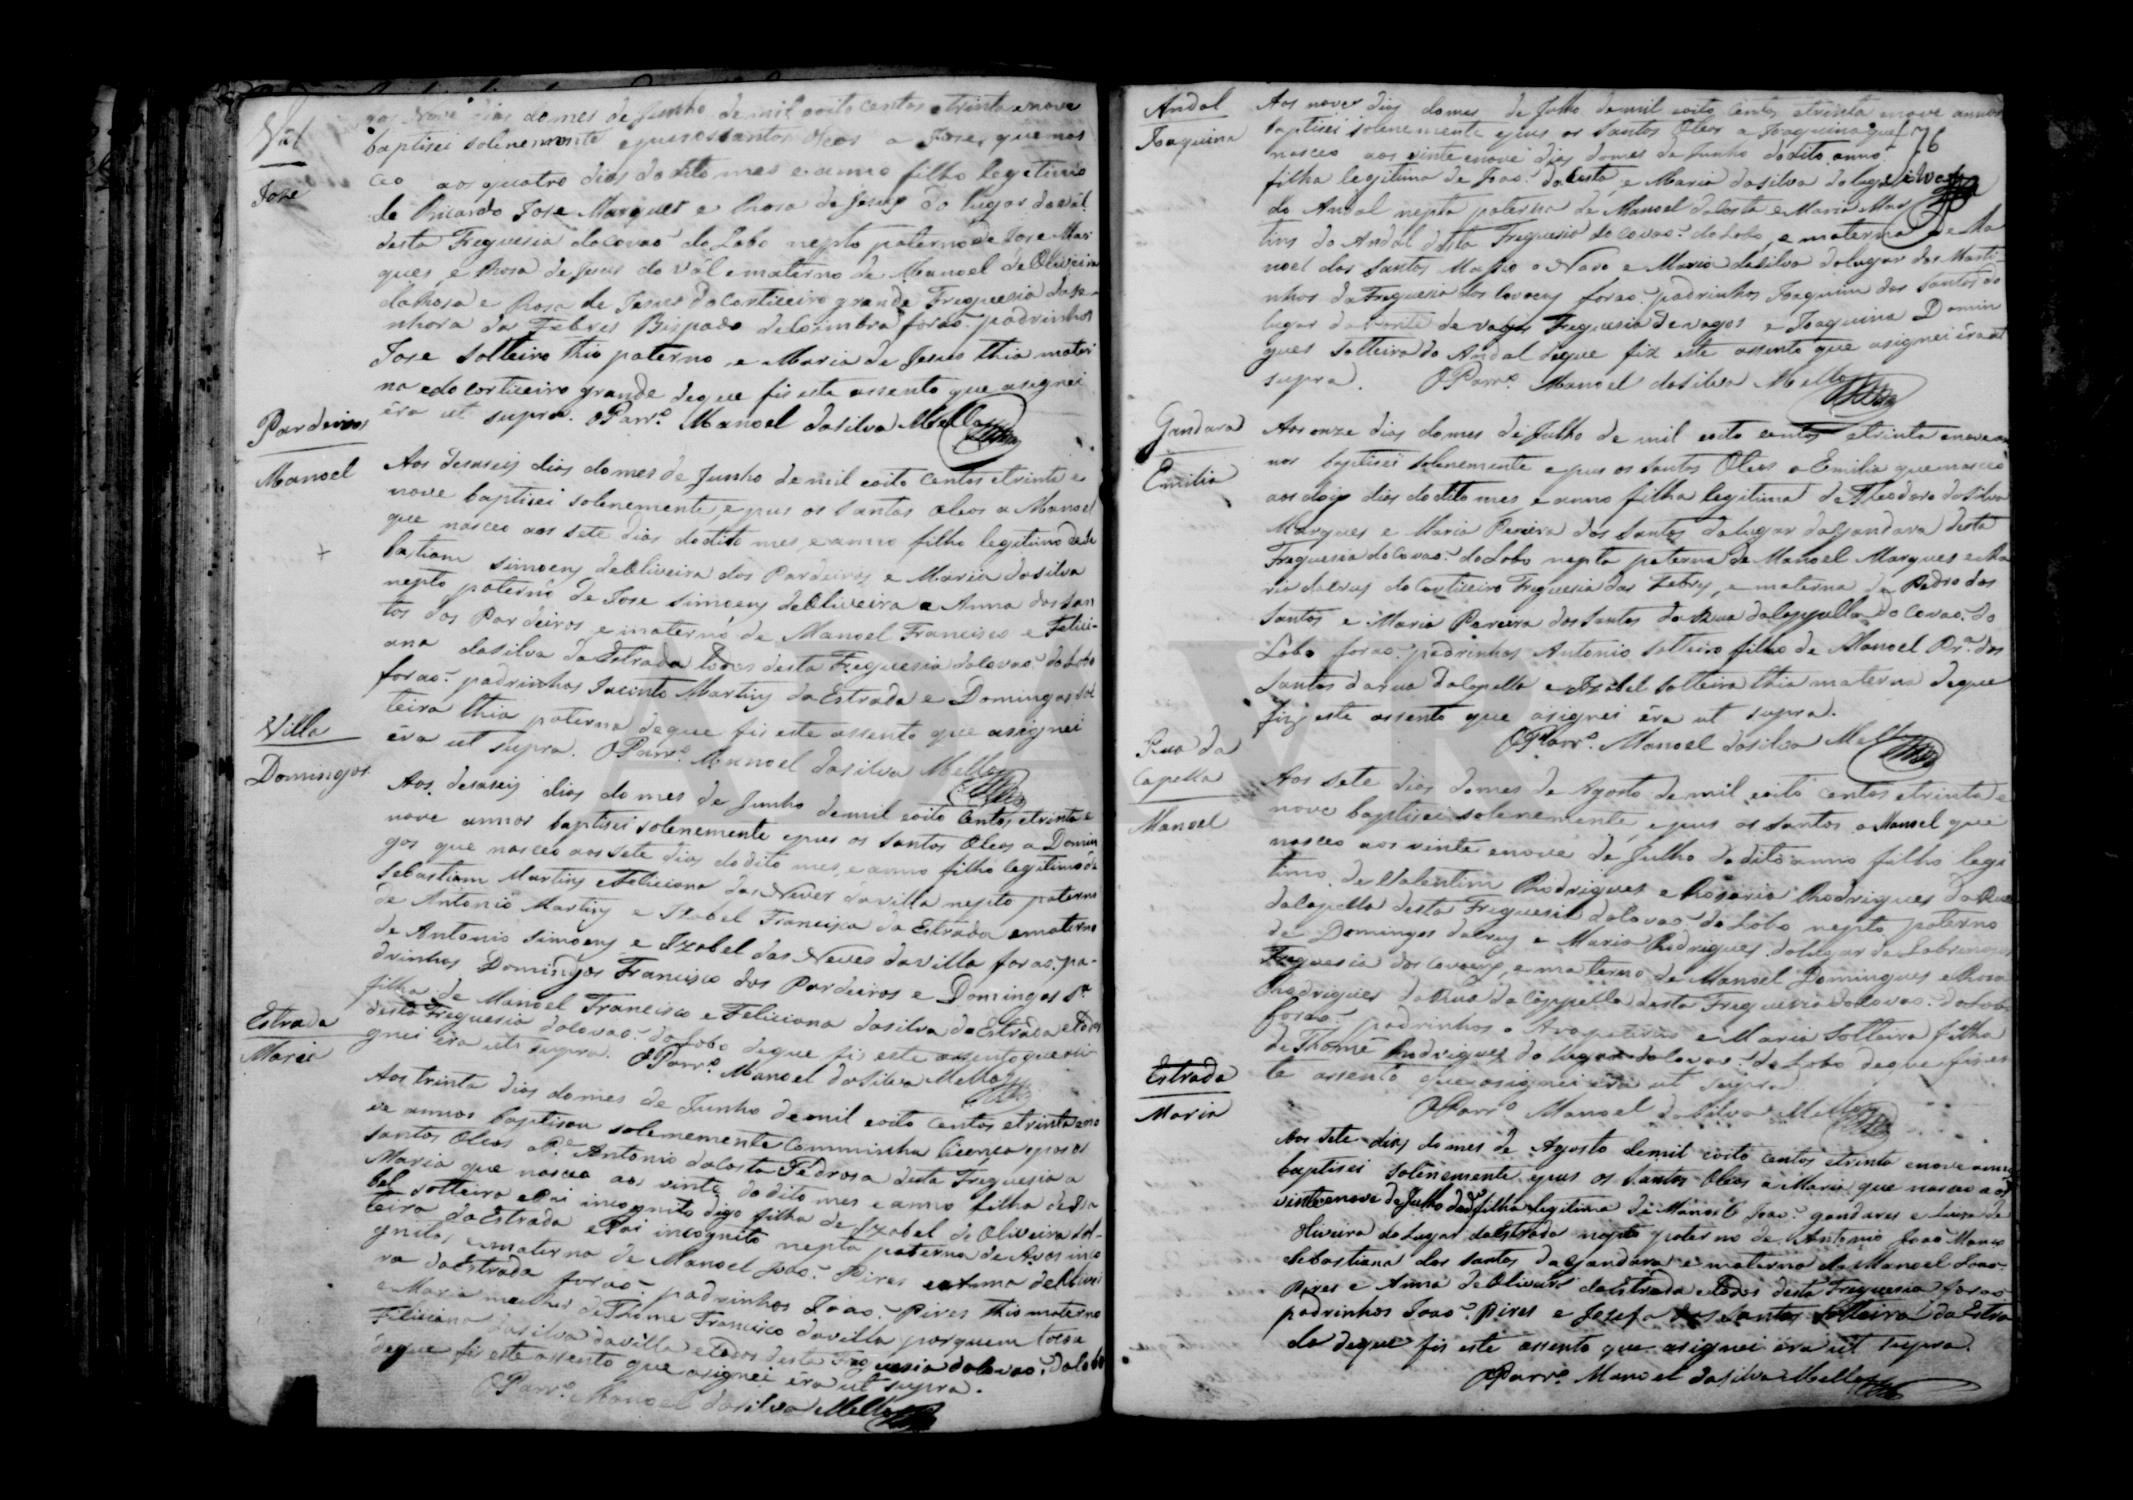 Val
Jose
aos Nove dias do mes de Junho de mil eoito centos etrinta enove
baptisei solenemente epus os santos oleos a Jose, que nas
ceo aos quatro dias do dito mes e anno filho legitimo
de Ricardo Jose Marques e Rosa de Jesus do lugar do val
desta Freguesia do Covaõ do Lobo nepto paterno de Jose Mar
ques e Rosa de Jesus do Vál ematerno de Manoel de Oliveira
da Rosa e Rosa de Jesus do Corticeiro grande Freguesia da se
nhora das Febres Bispado de Coimbra foraõ padrinhos
Jose solteiro thio paterno, e Maria de Jesus thia mater
na e do corticeiro grande deque fis este assento que asignei
éra ut supra. OParrº Manoel dasilva Mello
Pardeiros
Manoel
Aos desaseis dias domes de Junho de mil eoito centos etrinta e
nove baptisei solenemente, epus os santos oleos a Manoel
que nasceo aos sete dias dodito mes, eanno filho legitimo de Se
bastiam simoens deOliveira dos Pardeiros e Maria dasilva
nepto paterno de Jose simoens deOliveira e Anna dos san
tos dos Pardeiros, e materno de Manoel Francisco e Felici-
ana dasilva daEstrada todos desta Freguesia doCovaõ do Lobo
foraõ padrinhos Jacinto Martins da Estrada e Domingas sol
teira thia paterna deque fis este assento que asignei
éra ut supra. OParrº Manoel dasilva Mello
Villa
Domingos
Aos desaseis dias do mes de Junho demil eoito Centos etrinta e
nove annos baptisei solenemente epus os santos Oleos a Domin
gos que nasceo aos sete dias dodito mes, e anno filho legitimo de
Sebastiam Martins eFeliciana das Neves davilla nepto paterno
de Antonio Martins e Izabel Francisca da Estrada ematerno
de Antonio simoens e Izabel das Neves davilla foraõ pa-
drinhos Domingos Francisco dos Pardeiros e Domingas
filha de Manoel Francisco e Feliciana dasilva daEstrada etodos
desta Freguesia doCovaõ doLobo deque fis este assento que asi-
gnei éra ut supra. OParrº Manoel dasilva Mello
Estrada
Maria
Aos trinta dias domes de Junho demil eoito centos etrinta eno
ve annos baptisou solemnemente Comminha licença epos os
santos Oleos oPe Antonio daCosta Pedrosa desta Freguesia a
Maria que nasceo ao vinte dodito mes e anno filha deIza
bel solteira epai incognito digo filha de Izabel de Oliveira sol-
teira daEstrada ePai incognito nepta paterna de Avos inco
gnitos, ematerna de Manoel Joaõ Pires eanna deOlivei
ra daEstrada foraõ padrinhos Joaõ Pires thio materno
e Maria mulher de Thome Francisco davilla porquem tocou
Feliciana dasilva davilla etodos desta Freguesia doCovaõ doLobo
deque fis este assento que asignei éra ut supra.
OParrº Manoel dasilva Mello
76
Andal
Joaquina
Aos nove dias domes de Julho demil eoito centos etrinta enove annos
baptisei solenemente epus os santos Oleos a Joaquina que
nasceo aos vinte enove dias domes de Junho dodito anno
filha legitima de Joaõ daCosta, e Maria dasilva dolugar
do Andal nepta paterna de Manoel daCosta e Maria Mar
tins do Andal desta Freguesia doCovaõ doLobo, e materna de Ma
noel dos santos o Novo e Maria dasilva dolugar dos Marti-
nhos da Freguesia dos Covoens foraõ padrinhos Joaquim dos santos do
lugar da de vagos Freguesia devagos e Joaquina Domin
gues solteira do Andal deque fiz este assento que asignei éra ut
supra. OParrº Manoel dasilva Mello
Gandara
Emilia
Aos onze dias domes deJulho de mil eoito centos etrinta enove an
nos baptisei solenemente epus os santos Oleos a Emilia quenasceo
aos dois dias dodito mes, e anno filha legitima de Theodoro dasilva
Marques e Maria Pereira dos santos dolugar daGandara desta
Freguesia do Covaõ doLobo nepta paterna de Manoel Marques e Ma
ria daCruz do Corticeiro Freguesia das Febres, e materna de Pedro dos
Santos e Maria Pereira dos santos da Rua daCappella do Covaõ do
Lobo foraõ padrinhos Antonio solteiro filho de Manoel Prª dos
santos darua daCapella e Izabel solteira thia materna deque
fiz este assento que asignei éra ut supra.
OParrº Manoel dasilva Mello
Rua da
Capella
Manoel
Aos sete dias domes de Agosto de mil eoito centos etrinta e
nove baptisei solenemente, epus os santos a Manoel que
nasceo aos vinte enove de Julho do dito anno filho legi
timo de Valentim Rodrigues e Rosaria Rodrigues da Rua
daCapella desta Freguesia doCovaõ doLobo nepto paterno
de Domingos daCruz e Maria Rodrigues dolugar de
Freguesia dos Covoens, ematerno de Manoel Domingues e Rosa
Rodrigues daRua daCappella desta Freguesia doCovaõ doLobo
foraõ padrinhos o Avo paterno e Maria solteira filha
de Thomé Rodrigues do lugar doCovaõ doLobo deque fis es
te assento que asignei éra ut supra.
OParrº Manoel dasilva Mello
Estrada
Maria
Aos sete dias domes de Agosto demil eoito centos etrinta enove annos
baptisei solenemente epus os santos Oleos a Maria que nasceo aos
vinte enove deJulho filha legitima de Manoel Joaõ gandares e Luisa de
Oliveira do lugar daEstrada nepta paterno de Antonio Joaõ Manco
eSebastiana dos santos daGandara e materna de Manoel Joaõ
Pires e Anna deOliveira daEstrada etodos desta Freguesia foraõ
padrinhos Joaõ Pires e Josefa dos santos solteira daEstra
da deque fis este assento que asignei éra ut supra.
OParrº Manoel dasilva Mello
ADAVR